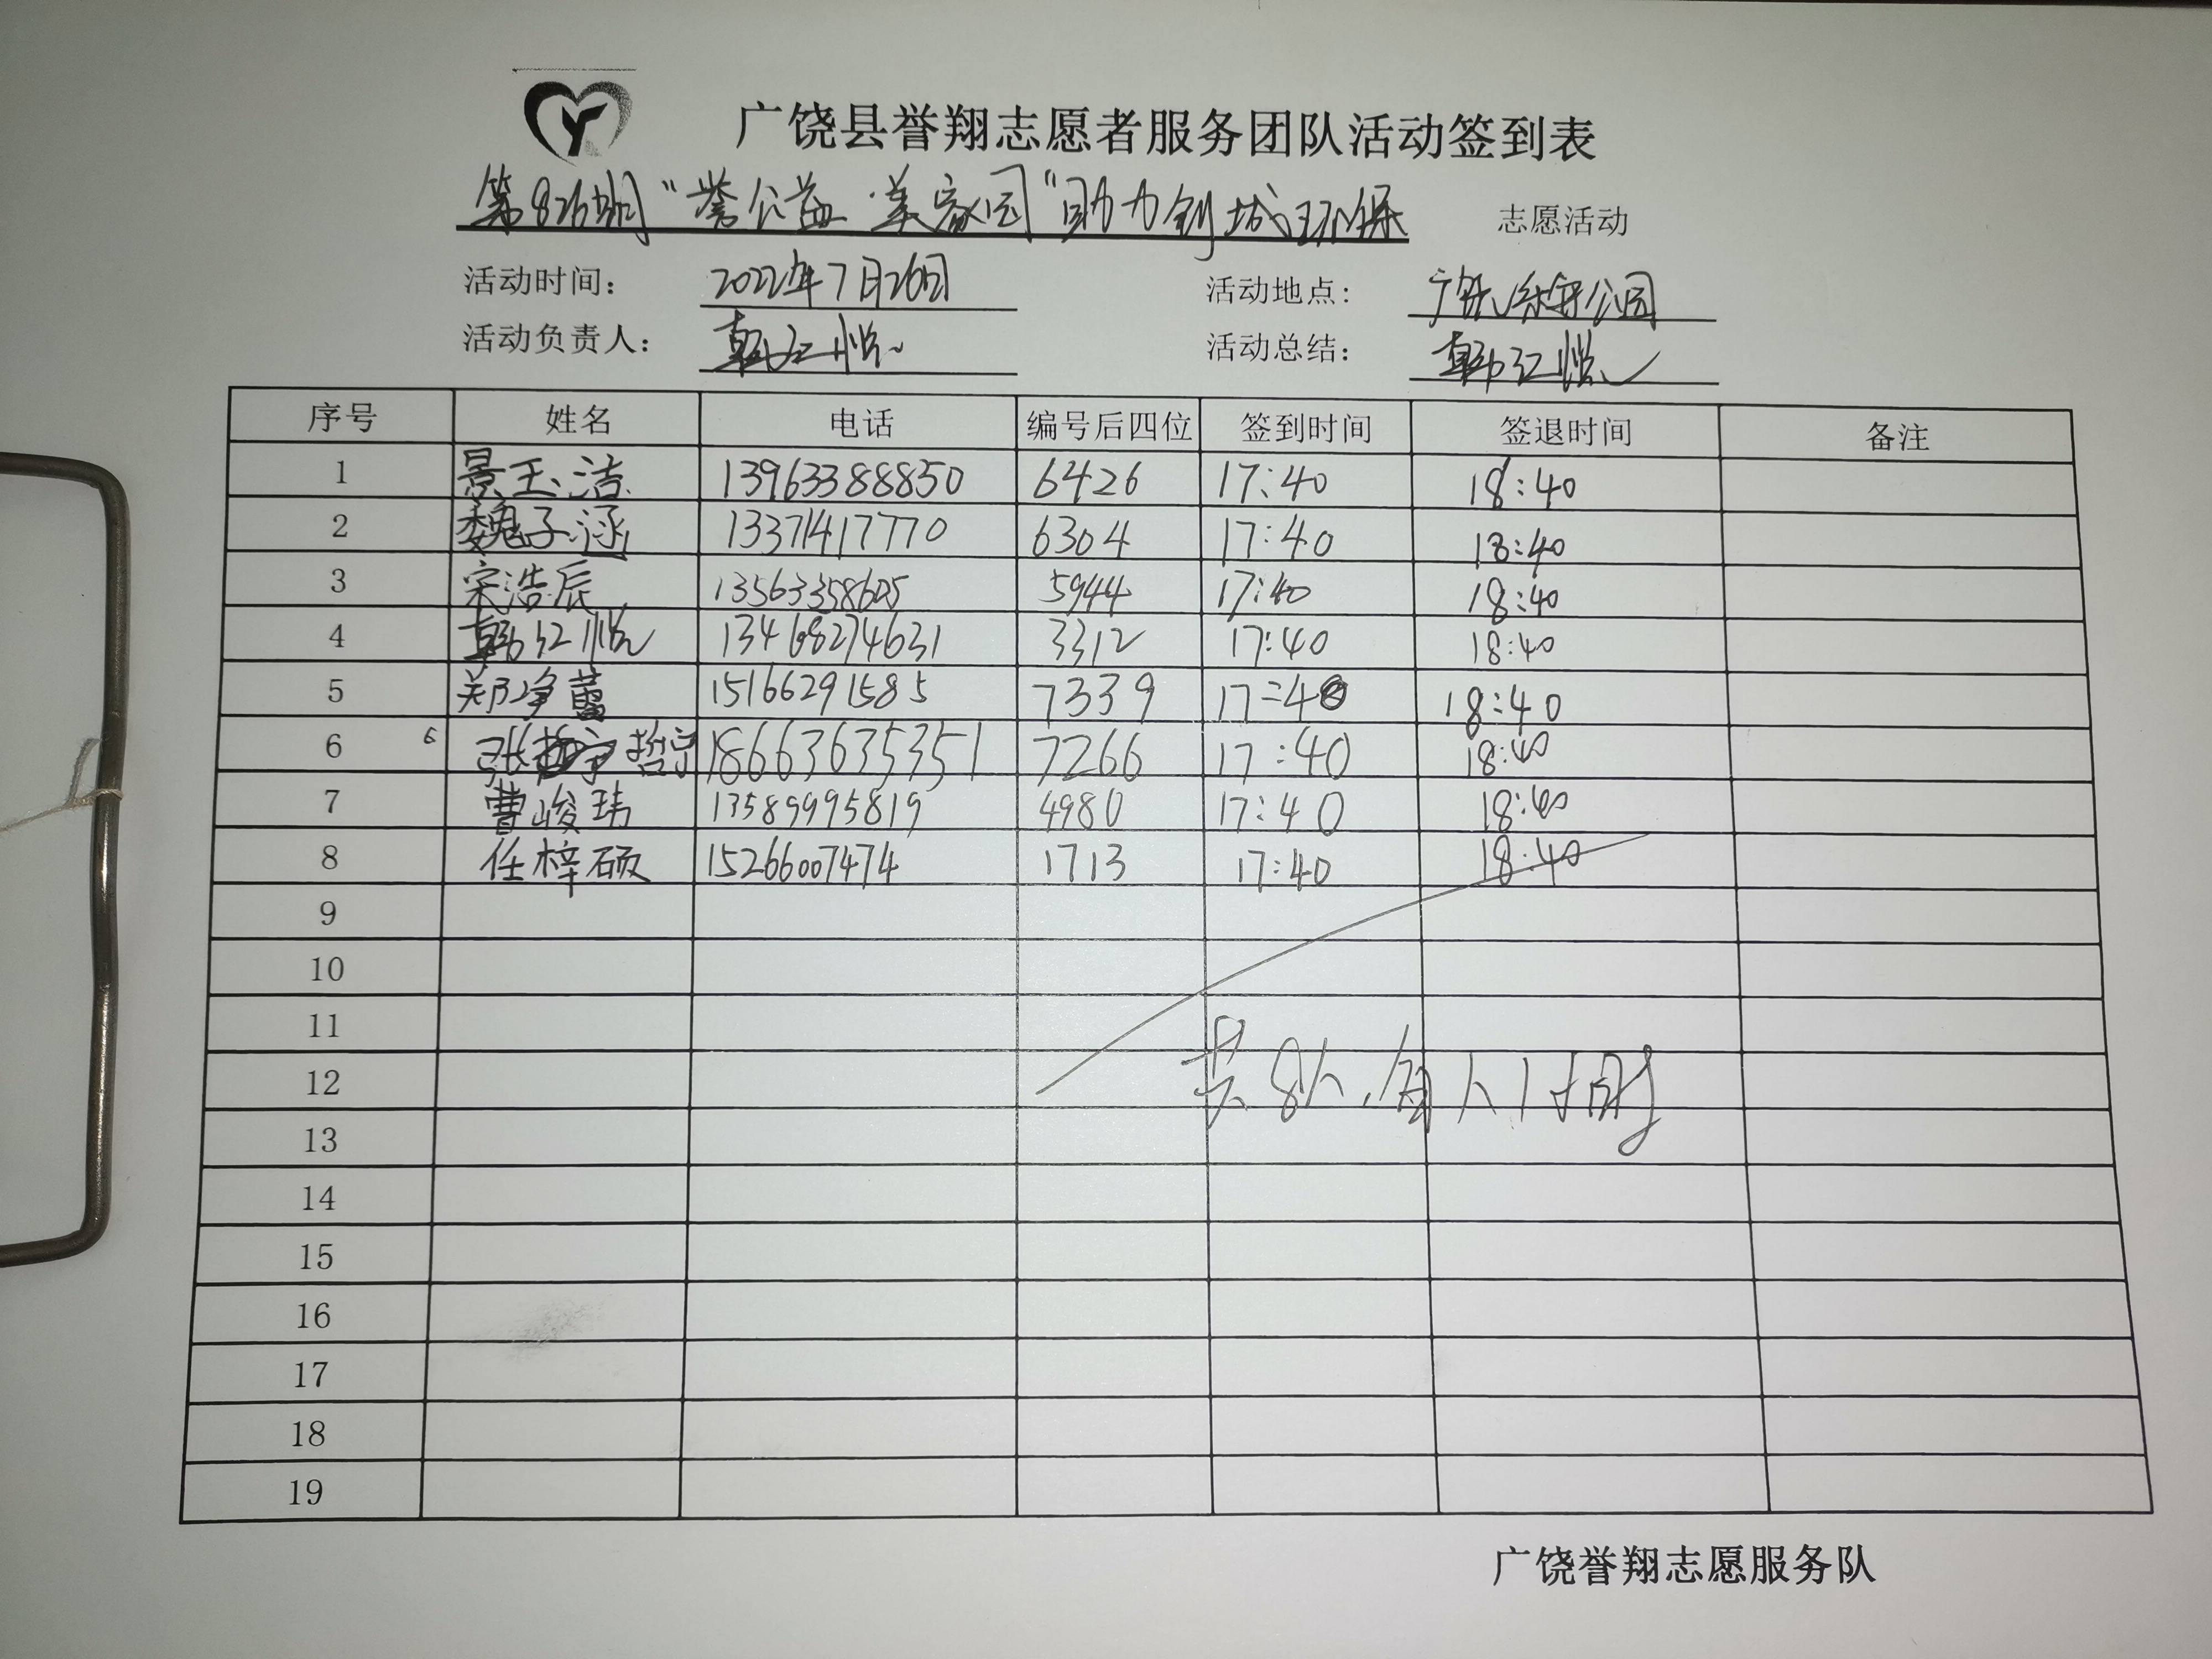 广饶县誉翔志愿者服务团队活动签到表
第826期“誉公益·美家园”助力创城环保 志愿活动
活动时间： 2022年7月26日 活动地点： 广饶乐安公园
活动负责人： 韩红悦 活动总结： 韩红悦
序号 姓名 电话 编号后四位 签到时间 签退时间 备注
1 景玉洁 13963388850 6426 17:40 18:40
2 魏子涵 13371417770 6304 17:40 18:40
3 宋浩辰 13563358605 5944 17:40 18:40
4 韩红悦 13468274631 3312 17:40 18:40
5 郑净蕾 15166291585 7339 17:40 18:40
6 6 张哲宁 18663635351 7266 17:40 18:40
7 曹峻玮 13589995819 4980 17:40 18:40
8 任梓硕 15266007474 1713 17:40 18:40
9
10
11
12 共8人,每人1小时
13
14
15
16
17
18
19
广饶誉翔志愿服务队